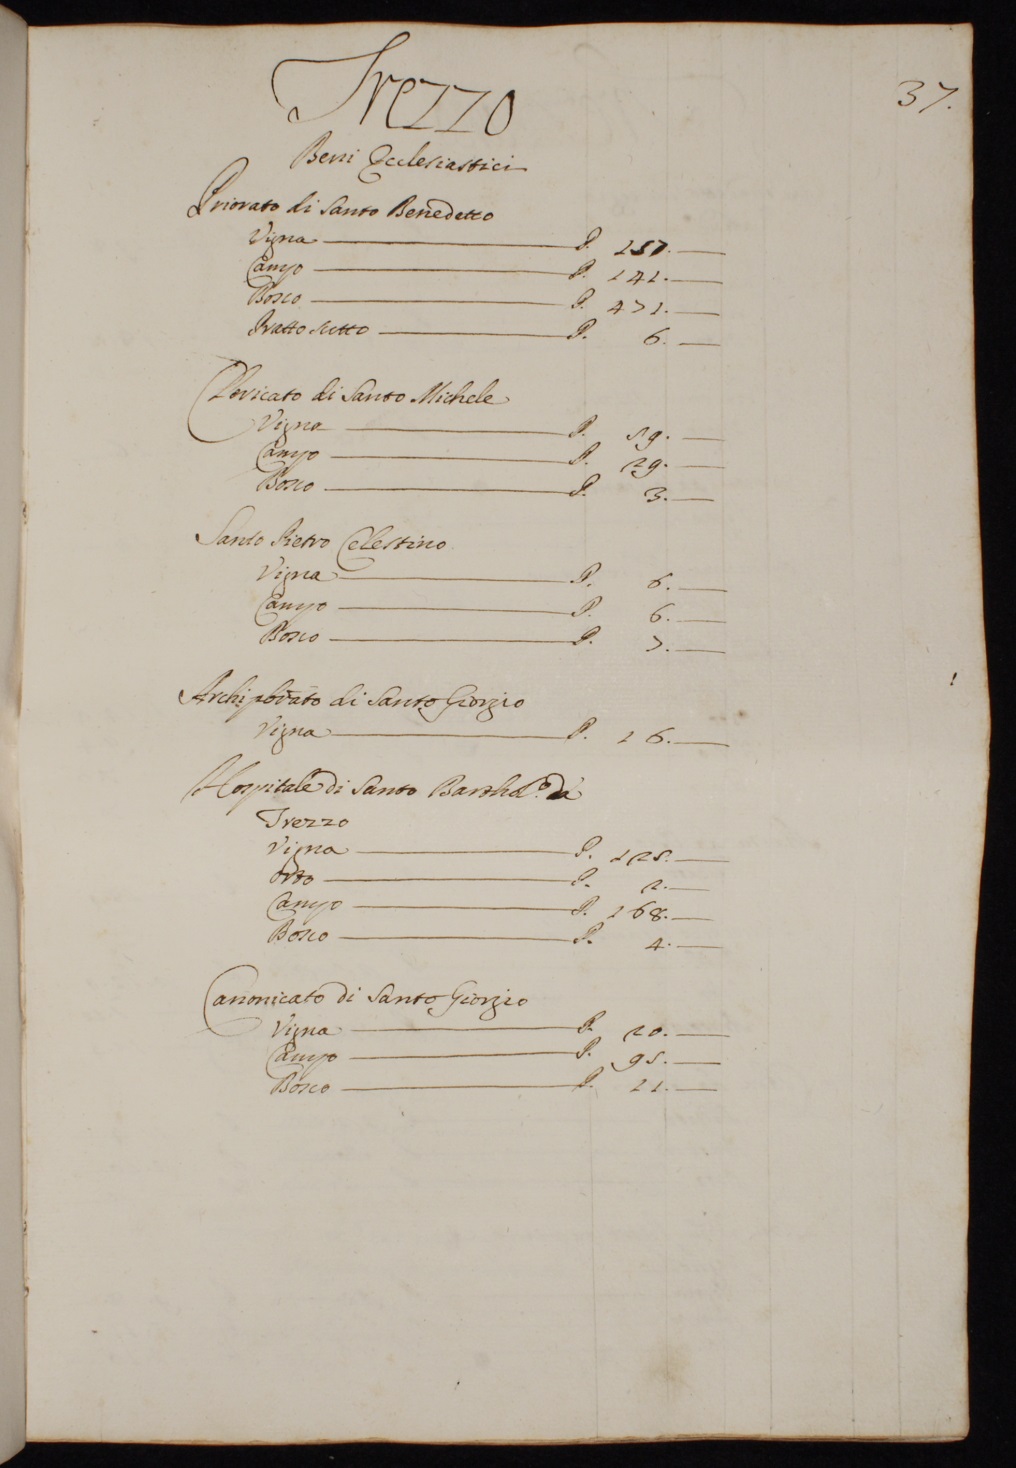 37.
Trezzo
Beni Ecclesiastici
Priorato di Santo Benedetto
Vigna P. 157.
Campo P. 141.
Bosco P. 471.
Pratto sutto P. 6.
Clericato di Santo Michele
Vigna P. 59.
Campo P. 29.
Bosco P. 3.
Santo Pietro Celestino
Vigna P. 6.
Campo P. 6.
Bosco P. 7.
di Santo Giorgio
Vigna P. 16.
Hospitale di Santo Barthol.o da
Trezzo
Vigna P. 125.
Orto P. 2.
Campo P. 168.
Bosco P. 4.
Canonicato di Santo Giorgio
Vigna P. 20.
Campo P. 95.
Bosco P. 21.